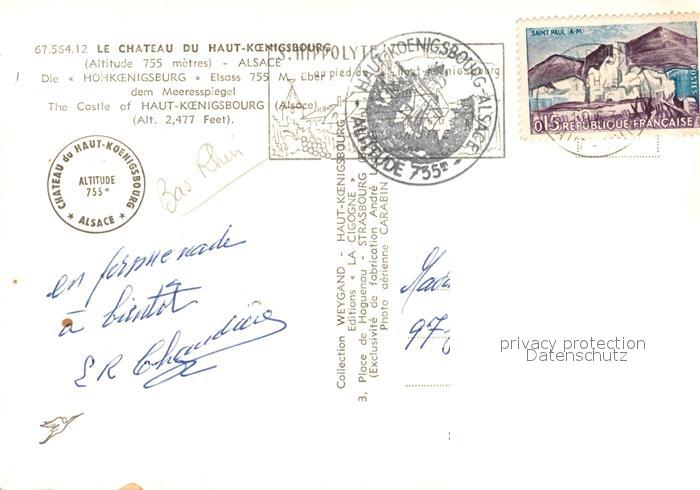 67.564.12 LE CHATEAU DU HAUT-KŒNIGSBOURG
(Altitude 755 mètres) - ALSACE
Die « HOHKŒNIGSBURG » Elsass 755 M. über
dem Meeresspiegel
The Castle of HAUT-KŒNIGSBOURG (Alsace)
(Alt. 2,477 Feet).
CHATEAU du HAUT-KOENIGSBOURG
ALTITUDE
755 m
★ ALSACE ★
Bas Rhin
en promenade
à bientôt
ER Chaudière
ST HIPPOLYTE
au pied du haut-koenigsbourg
HAUT-KOENIGSBOURG-ALSACE
- ALTITUDE 755m -
SAINT PAUL (A-M)
POSTES
0,15 REPUBLIQUE FRANÇAISE
Collection WEYGAND - HAUT-KŒNIGSBOURG
Editions « LA CIGOGNE »
3, Place de Haguenau - STRASBOURG
(Exclusivité de fabrication André
Photo aérienne CARABIN
Mad
97
privacy protection
Datenschutz